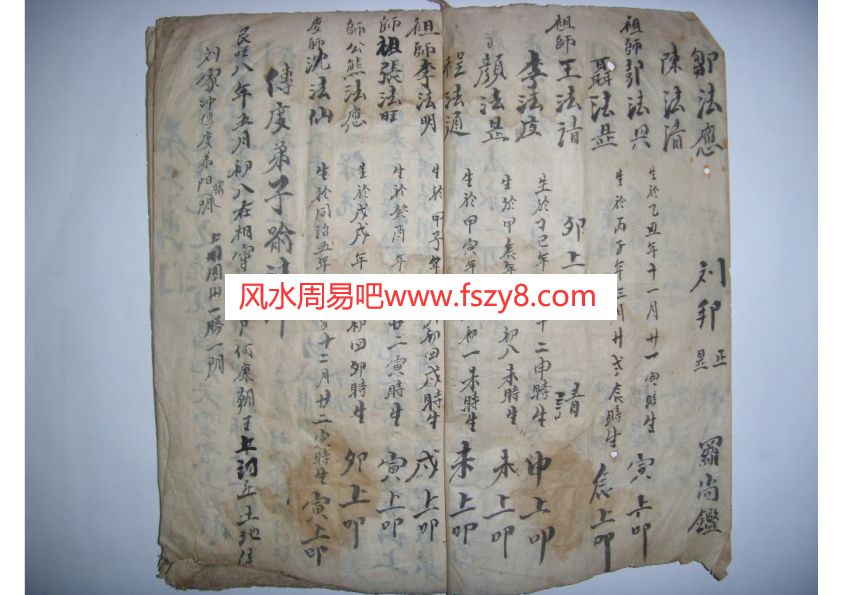 鄒法應 刘邦正昱 羅尚鑑
陳法清
祖師彭法興 生於乙丑年十一月廿一寅時生 寅上叩
聶法昰 生於丙子年三月廿弍辰時生 辰上叩
祖師王法請 卯上 請
李法庋 生於丁巳年 十二申時生 申上叩
顏法昰 生於甲辰年 初八未時生 未上叩
程法通 生於甲寅年 初一未時生 未上叩
祖師李法明 生於甲子年 初四戌時生 戌上叩
師祖張法旺 生於癸酉年 廿二寅時生 寅上叩
師公熊法應 生於戊戌年 初四卯時生 卯上叩
度師沈法仙 生於同治五年 十二月廿二寅時生 寅上叩
傳度弟子喻法
民國八年五月初八在相 何寨朝王上洞五土地住
刘家冲傳度弟 陽開 一勝一陰
风水周易吧www.fszy8.com